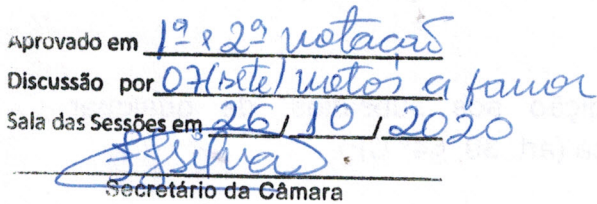 Aprovado em 1ª e 2ª votação
Discussão por 07 (sete) votos a favor
Sala das Sessões em 26 / 10 / 2020
Silva
Secretário da Câmara